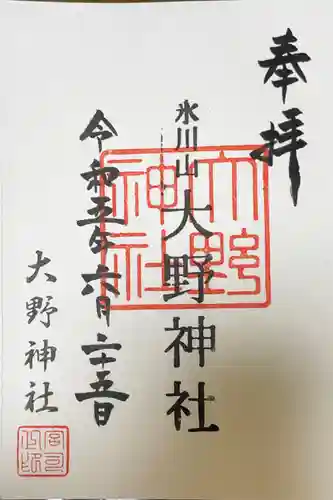 奉拝
氷川山 大野神社
令和五年 六月二十五日
大野神社
大野神社